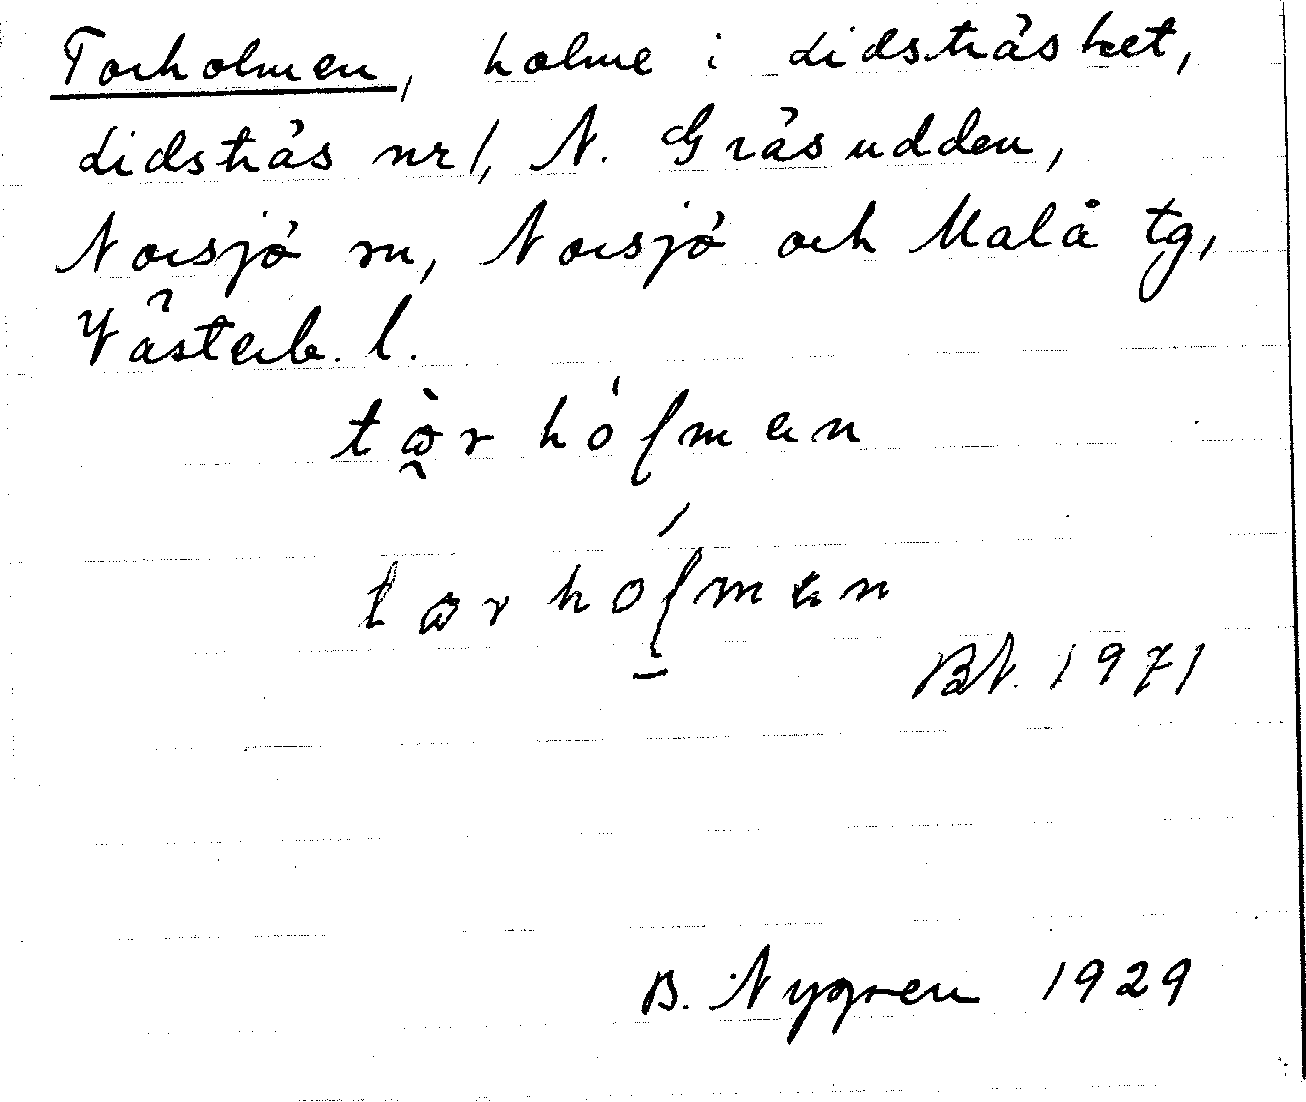 Torholmen, holme i Lidsträsket,
Lidsträs nr 1, N. Gräsudden,
Norsjö sn, Norsjö och Malå tg,
Västerb. l.
BN. 1971
B. Nygren 1929